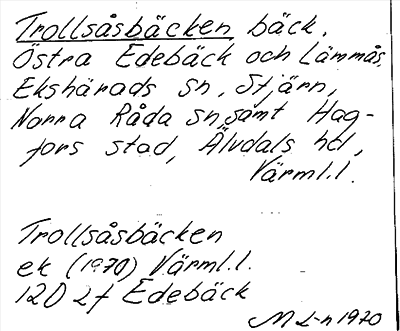 Trollsåsbäcken, bäck,
Östra Edebäck och Lämmås,
Ekshärads sn, Stjärn,
Norra Råda sn, samt Hag-
fors stad, Älvdals hd,
Värml. l.
Trollsåsbäcken
ek (1970) Värml. l.
12D 2f Edebäck
M L-n 1970